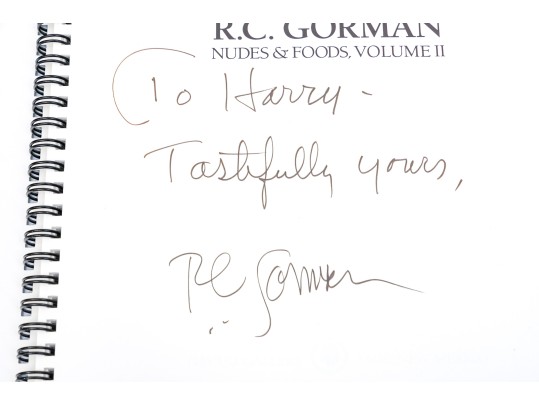 R.C. GORMAN
NUDES & FOODS, VOLUME II
To Harry -
Tastefully yours,
R.C. Gorman